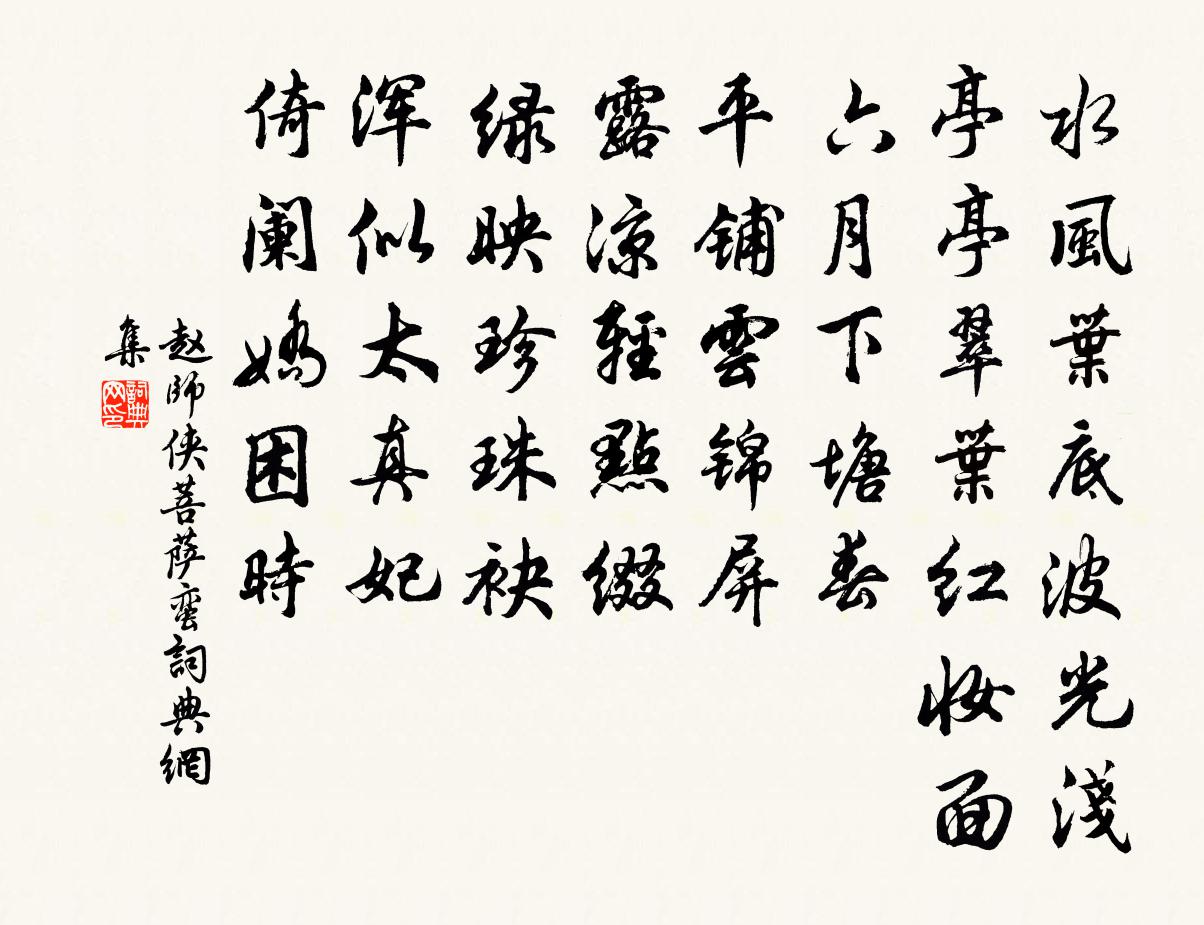 水風葉底波光淺
亭亭翠葉紅妝面
六月下塘春
平鋪雲錦屏
露涼輕點綴
绿映珍珠袂
浑似太真妃
倚阑嬌困時
赵師侠菩萨蛮詞典網
集
詞典
网印